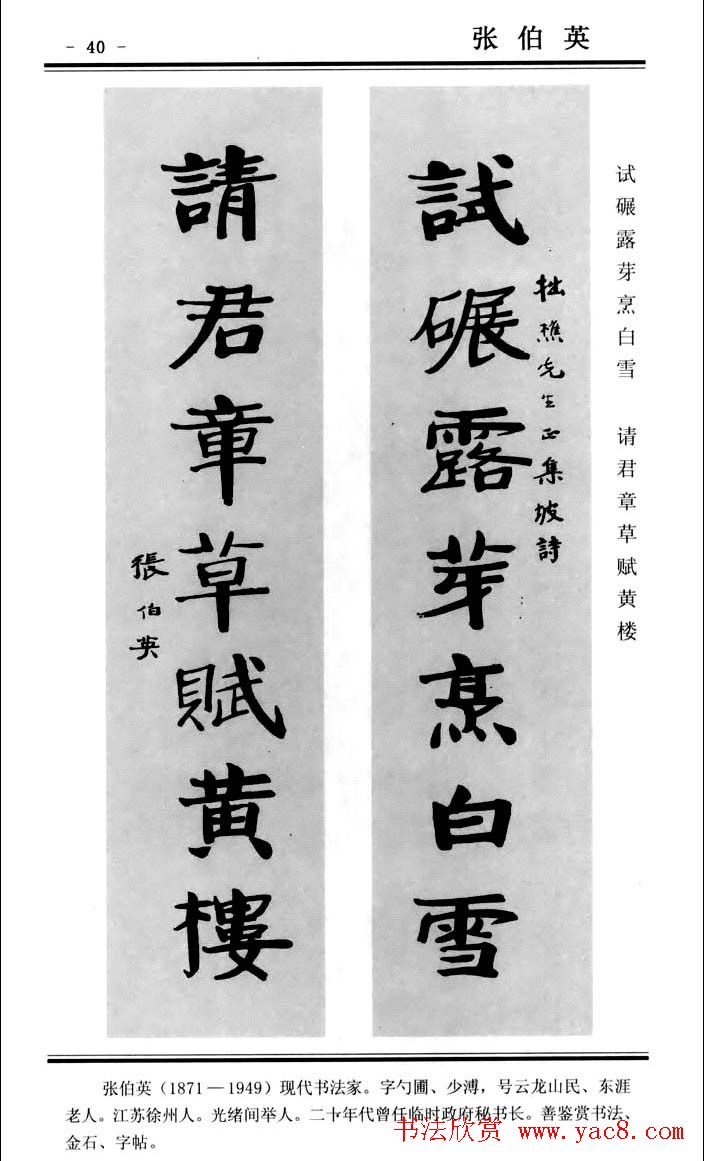 - 40 -
张伯英
试碾露芽烹白雪 请君章草赋黄楼
試碾露芽烹白雪
拙樵先生正集坡詩
請君章草賦黄樓
張伯英
张伯英(1871—1949)现代书法家。字勺圃、少溥，号云龙山民、东涯
老人。江苏徐州人。光绪间举人。二十年代曾任临时政府秘书长。善鉴赏书法、
金石、字帖。
书法欣赏 www.yac8.com